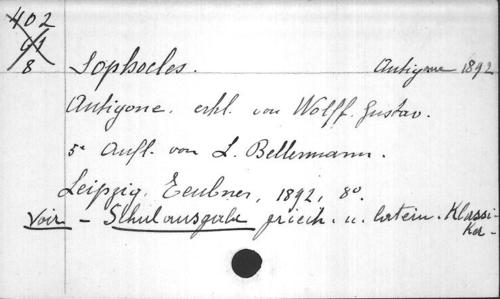 402
91
8
Sophocles. Antigone 1892
Antigone. erkl. von Wolff. Gustav.
5e Aufl. von L. Bellermann.
Leipzig. Teubner, 1892, 8o.
Voir - Schulausgabe griech. u. latein. Klassi-
ker -